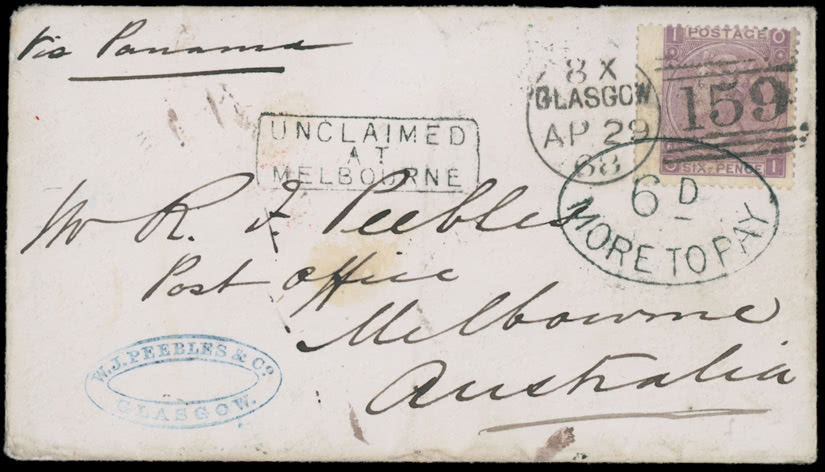 Via Panama
8 X
GLASGOW
AP 29
68
I POSTAGE O
159
O SIX PENCE I
UNCLAIMED
AT
MELBOURNE
6D
MORE TO PAY
Mr R. J. Peebles
Post Office
Melbourne
Australia
W. J. PEEBLES & Co.
GLASGOW.